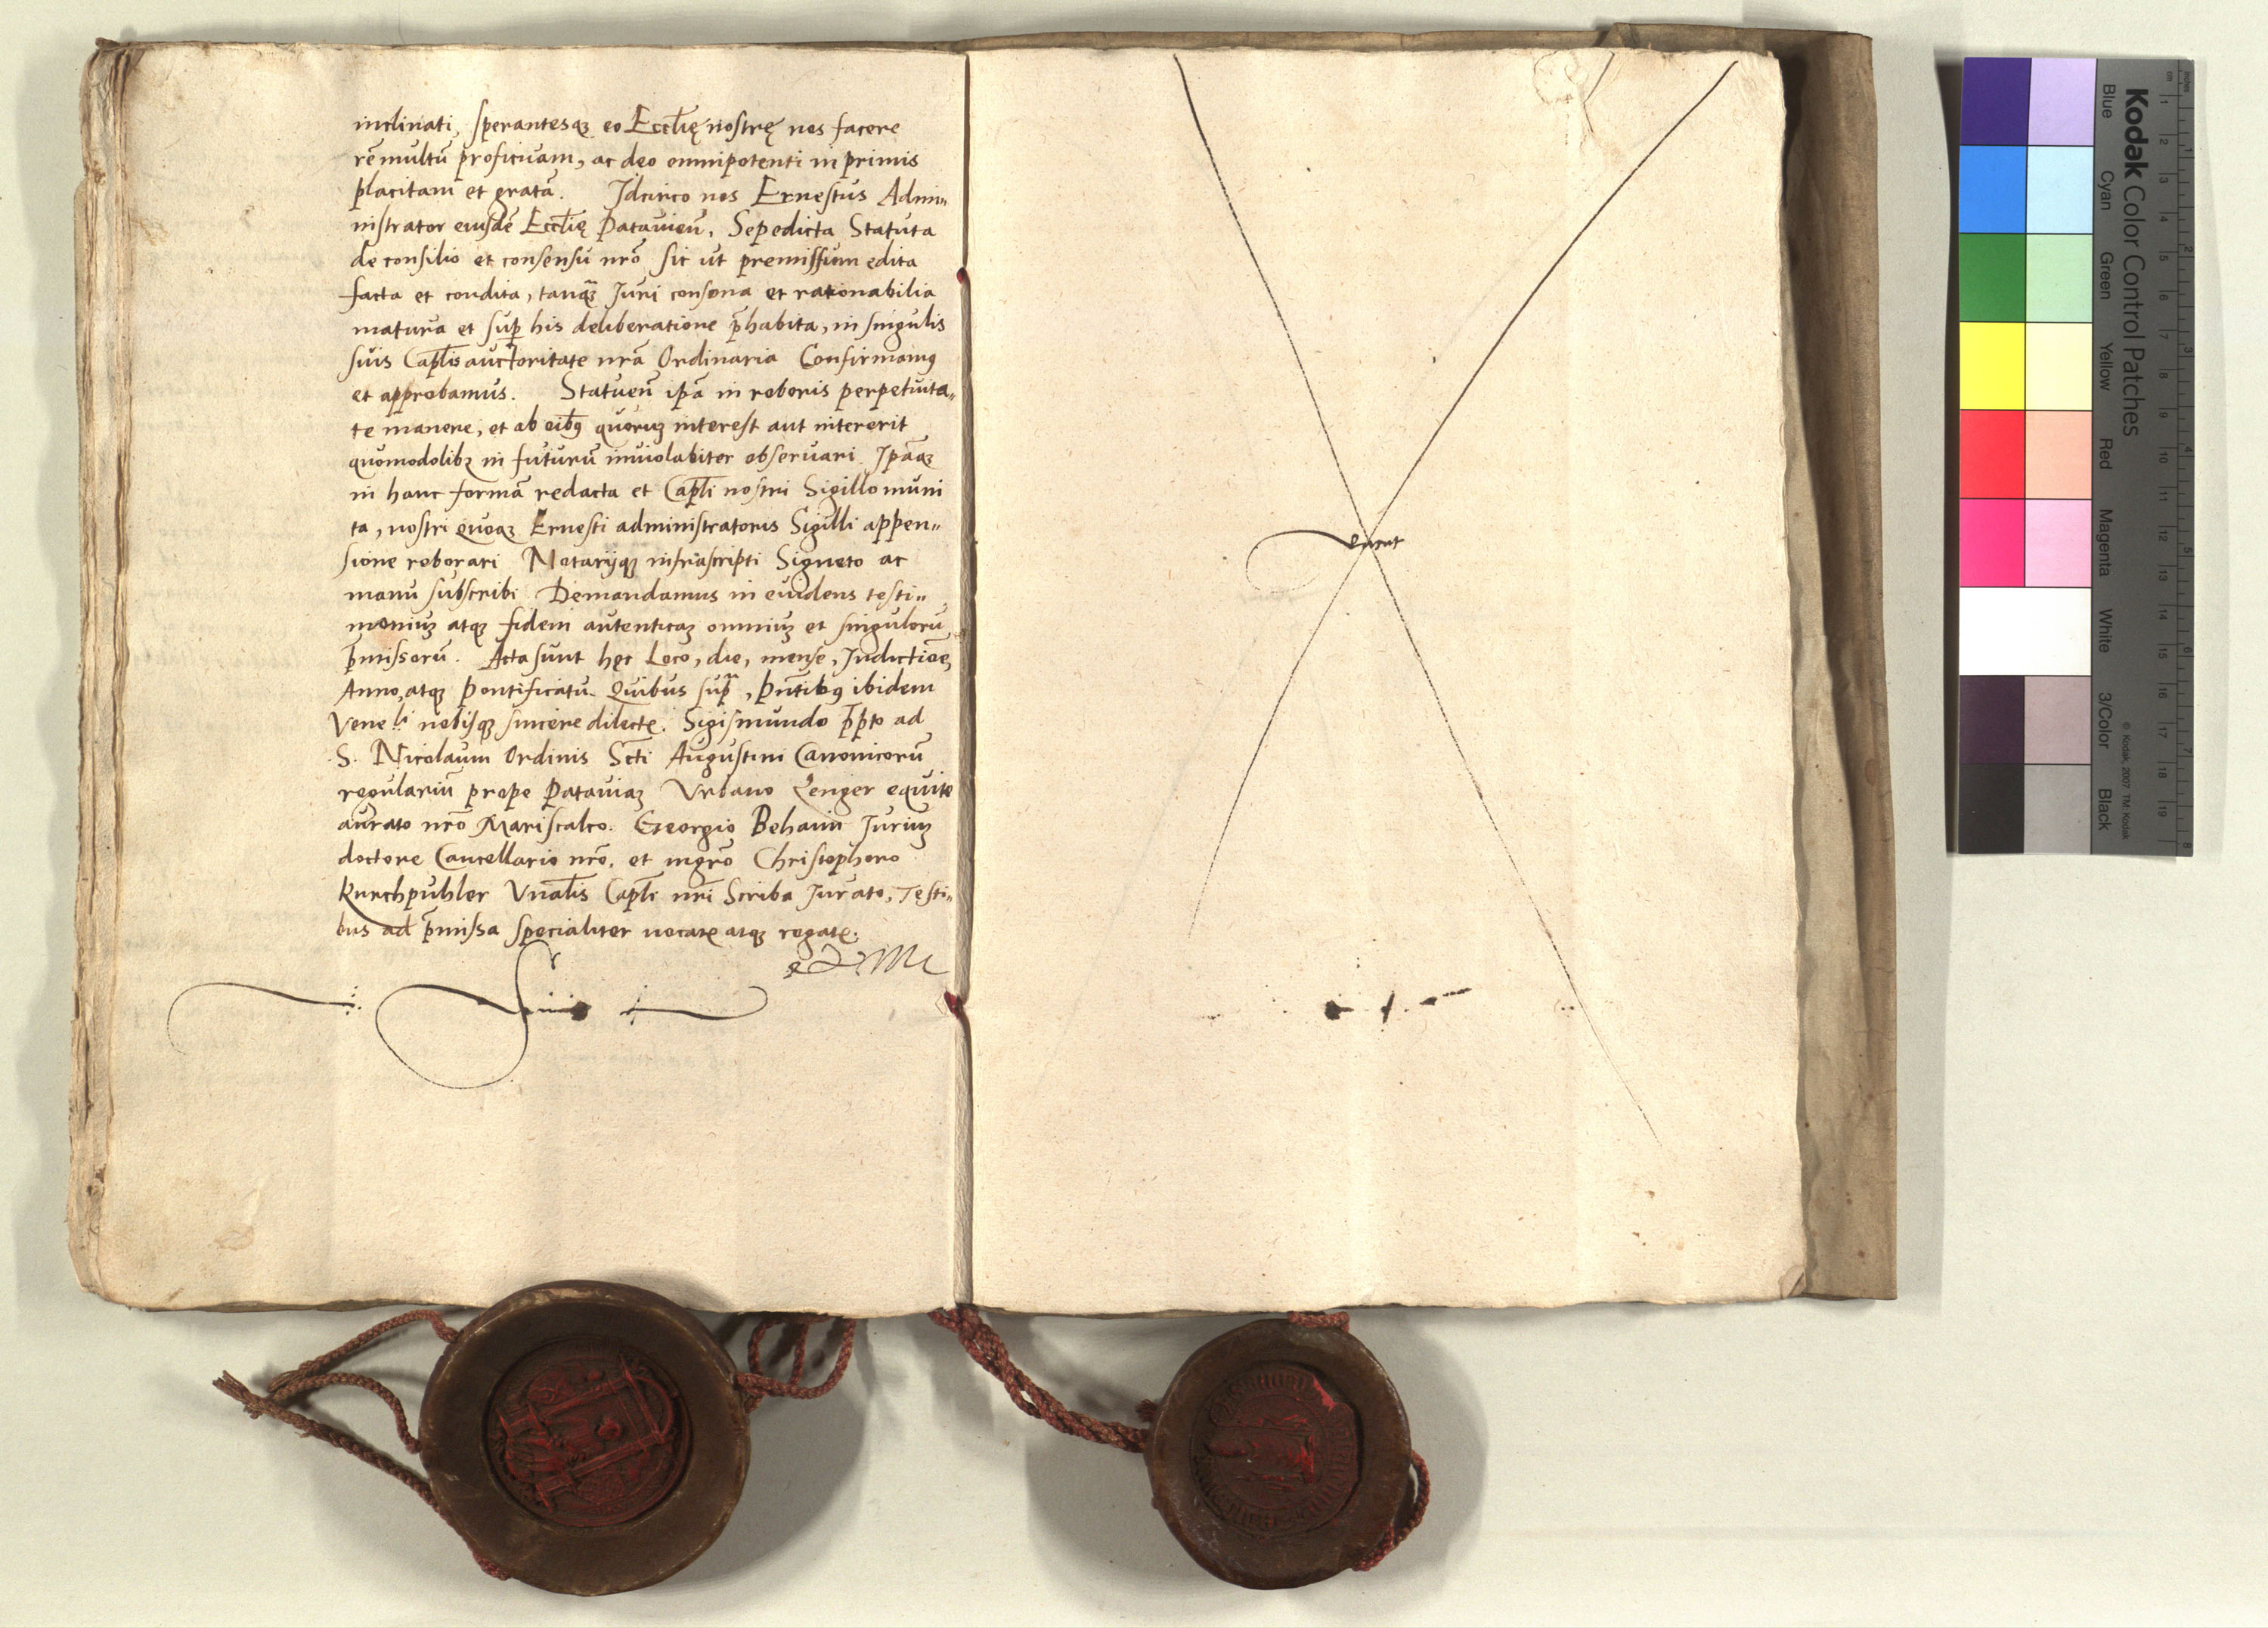 inclinati, sperantesqȝ eo Eccl̄ię nostrę nos facere
rē multū proficuam, ac deo omnipotenti in primis
placitam et gratā. Idcirco nos Ernestus Admi„
nistrator eiusdē Eccl̄ię Patauieñ, Sepedicta Statuta
de consilio et consensu nrō sic ut premissum edita
facta et condita, tanqȝ Iuri consona et rationabilia
matura et sup̱ his deliberatione p̄habita, in singulis
suis Capl̄is auctoritate nrā Ordinaria Confirmamꝯ
et approbamus. Statueñ ip̄a in roboris perpetuita„
te manere, et ab oib̄ꝯ quorūȝ interest aut intererit
quomodolibȝ in futurū inuiolabiter obseruari. Ip̄aqȝ
in hanc formā redacta et Capl̄i nostri Sigillo muni
ta, nostri quoqȝ Ernesti administratoris Sigilli appen„
sione roborari Notarijqȝ infrascripti Signeto ac
manu subscribi Demandamus in euidens testi„
moniuȝ atqȝ fidem autenticaȝ omniuȝ et singulorū
p̄missorū. Acta sunt hęc Loco, die, mense, Indictiōe,
Anno, atqȝ Pontificatu. Quibus sup̄, p̄ntibꝯ ibidem
Vene nobisqȝ sincere dilectę. Sigismundo p̄p̄to ad
S. Nicolaum Ordinis Sc̄ti Augustini Canonicorū
regulariū prope Patauiaȝ Vrbano Zenger equite
aurato nrō Mariscalco. Georgio Behaim Iuriuȝ
doctore Cancellario nrō. et mgrō Christophoro
kurchpuhler Vnal̄is Capl̄i nr̄i Scriba Iurato, Testi„
bus ad p̄missa specialiter uocatę atqȝ rogatę.
Kodak Color Control Patches
Blue Cyan Green Yellow Red Magenta White 3/Color Black
© Kodak, 2007 TM: Kodak
inches
cm
1 2 3 4 5 6 7 8 9 10 11 12 13 14 15 16 17 18 19
1 2 3 4 5 6 7 8